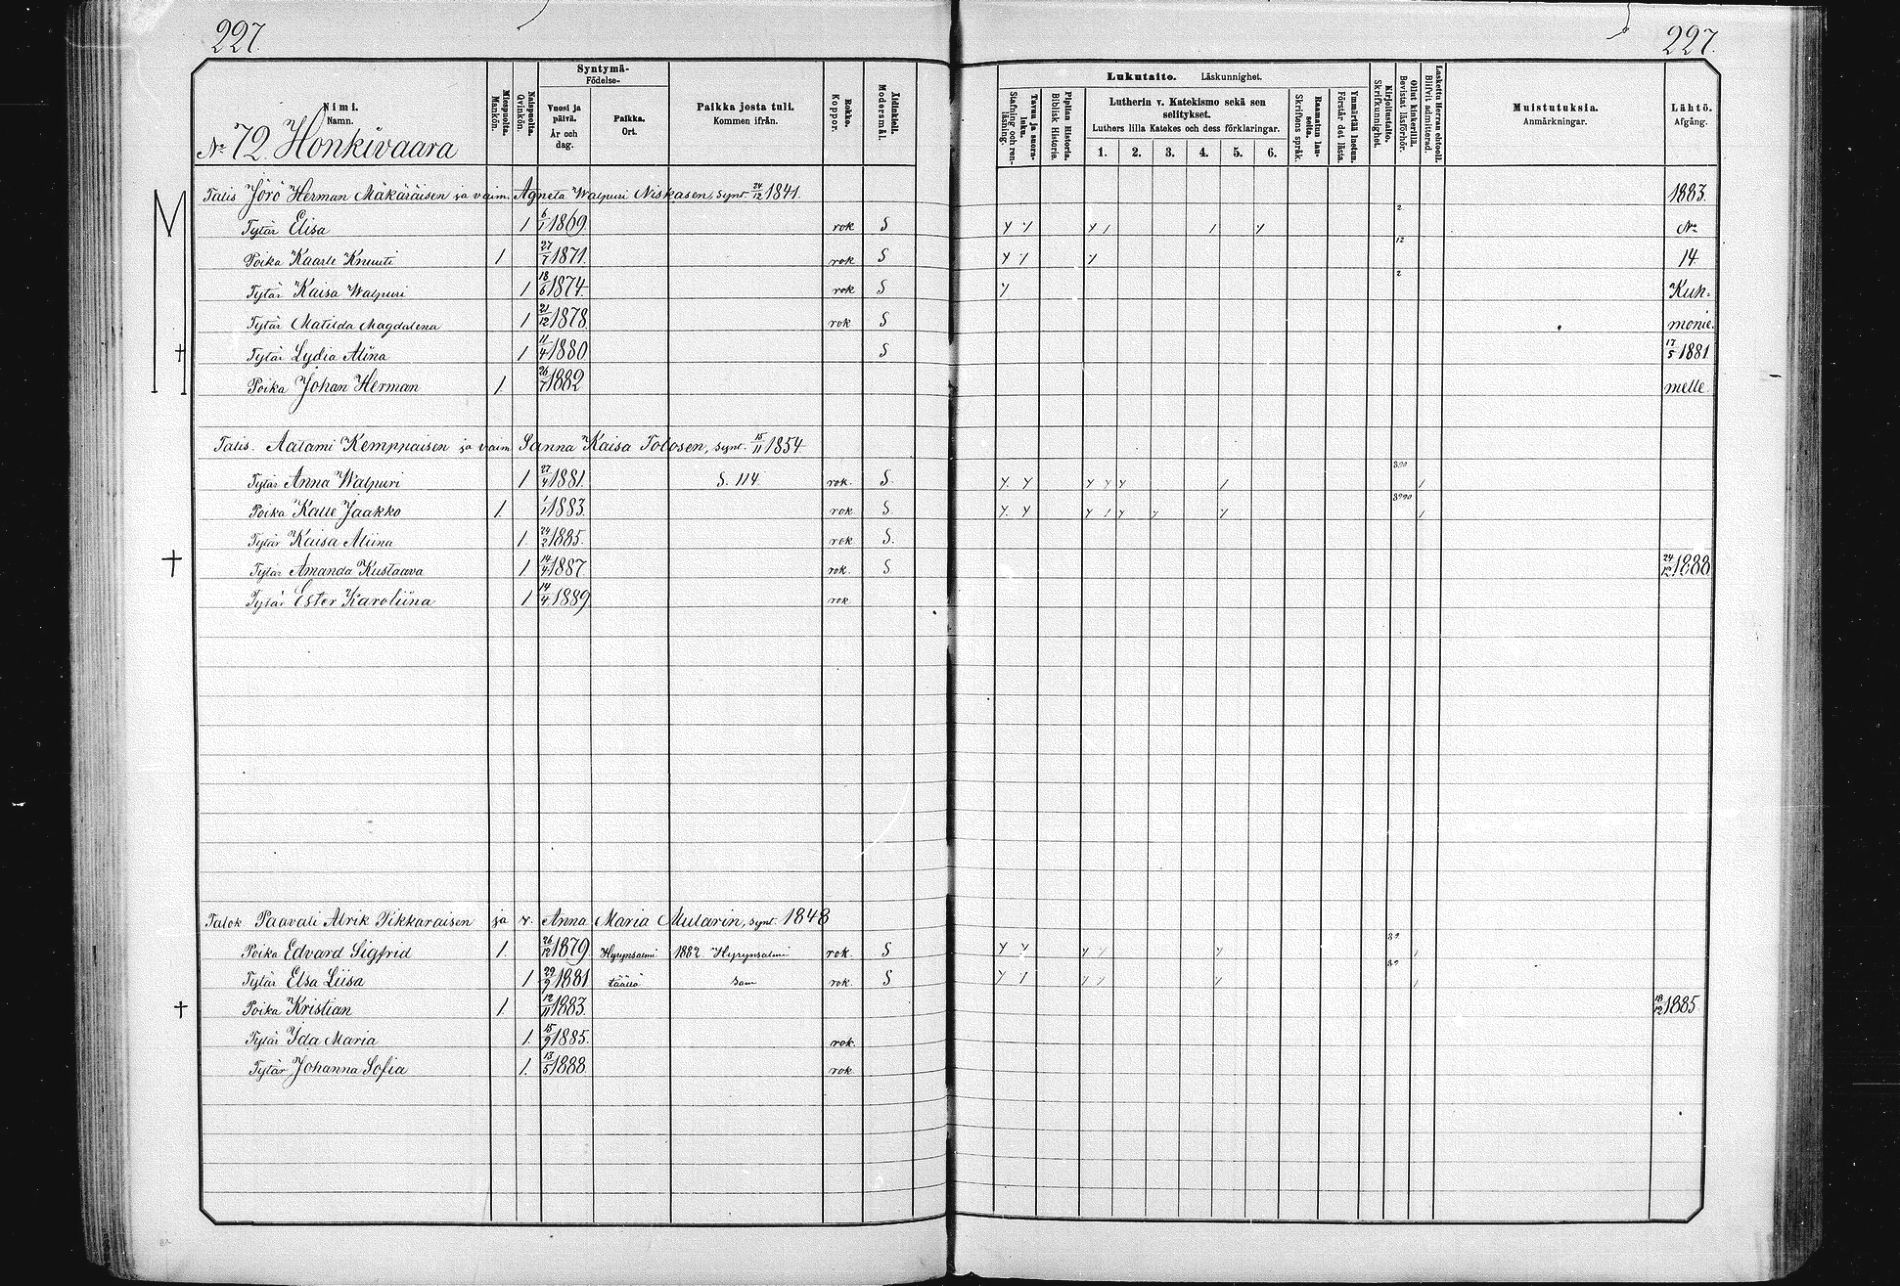 227.
227.
Nimi. Namn.
Miespuolta. Mankön.
Naispuolta. Qvinkön.
Syntymä- Födelse-
Vuosi ja päivä. År och dag.
Paikka. Ort.
Paikka josta tuli. Kommen ifrån.
Rokko. Koppor.
Äidinkieli. Modersmål.
Lukutaito. Läskunnighet.
Tavu ja suora- luku. Stafning och ren- läsning.
Piplian Historia. Biblisk Historia.
Lutherin v. Katekismo sekä sen selitykset.
Luthers lilla Katekes och dess förklaringar.
1. 2. 3. 4. 5. 6.
Raamatun lau- seita. Skriftens språk.
Ymmärtää luetun. Förstår det lästa.
Kirjoitustaito. Skrifkunnighet.
Ollut kinkerillä. Bevistat läsförhör.
Laskettu Herran ehtool. Blifvit admitterad.
Muistutuksia. Anmärkningar.
Lähtö. Afgång.
No 72. Honkivaara
Talis Jörö Herman Mäkäräisen ja vaim. Agneta Walpuri Niskasen, synt. 24/12 1841. 1883.
Tytär Elisa 1 6/1 1869. rok S 2 No
Poika Kaarle Knuuti 1 27/7 1871. rok S 12 14
Tytär Kaisa Walpuri 1 18/6 1874. rok S 2 Kuh-
Tytär Matilda Magdalena 1 21/12 1878. rok S monie.
† Tytär Lydia Alina 1 11/4 1880 S 17/5 1881
Poika Johan Herman 1. 26/7 1882 melle.
Talis. Aatami Kemppaisen ja vaim. Sanna Kaisa Tolosen, synt. 15/11 1854
Tytär Anna Walpuri 1 27/4 1881. S. 114. rok. S.
Poika Kalle Jaakko 1. 1/1 1883. rok. S.
Tytär Kaisa Aliina 1. 24/2 1885. rok S.
† Tytär Amanda Kustaava 1 14/4 1887. rok. S. 24/12 1888
Tytär Ester Karoliina 1 14/4 1889 rok
Talok Paavali Alrik Pikkaraisen ja v. Anna Maria Mularin, synt. 1848
Poika Edvard Sigfrid 1. 26/12 1879. Hyrynsalmi 1882 Hyrynsalmi rok. S
Tytär Elsa Liisa 1 29/9 1881 täällä sam rok. S
† Poika Kristian 1. 12/11 1883. 18/12 1885
Tytär Ida Maria 1. 15/9 1885. rok.
Tytär Johanna Sofia 1. 13/5 1888. rok